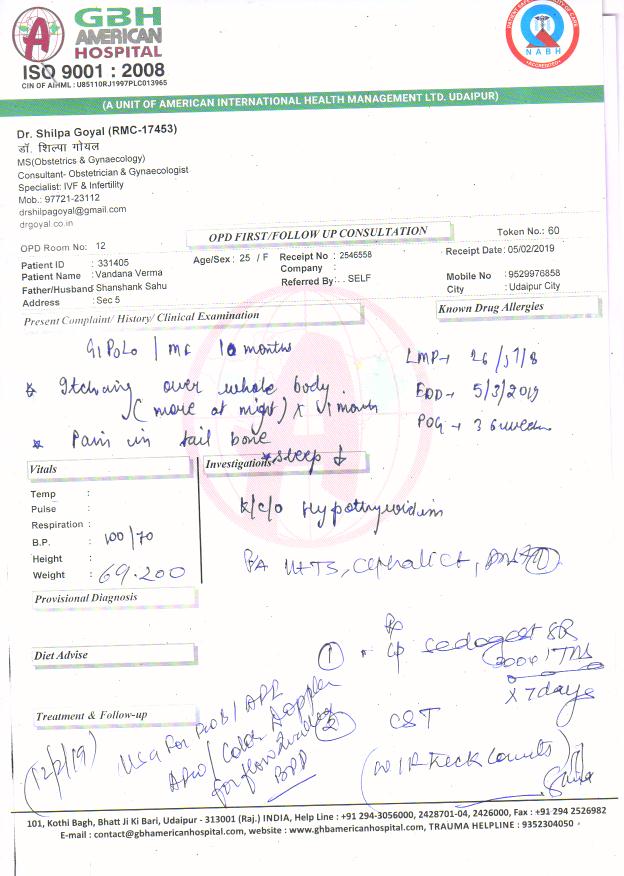 GBH
AMERICAN
HOSPITAL
ISO 9001 : 2008
CIN OF AIHML : U85110RJ1997PLC013965
PATIENT SAFETY & QUALITY OF CARE
NABH
ACCREDITED
(A UNIT OF AMERICAN INTERNATIONAL HEALTH MANAGEMENT LTD. UDAIPUR)
Dr. Shilpa Goyal (RMC-17453)
डॉ. शिल्पा गोयल
MS(Obstetrics & Gynaecology)
Consultant- Obstetrician & Gynaecologist
Specialist: IVF & Infertility
Mob.: 97721-23112
drshilpagoyal@gmail.com
drgoyal.co.in
OPD FIRST/FOLLOW UP CONSULTATION
Token No.: 60
OPD Room No: 12
Patient ID : 331405
Age/Sex : 25 / F
Receipt No : 2546558
Receipt Date: 05/02/2019
Patient Name : Vandana Verma
Company :
Father/Husband Shanshank Sahu
Referred By: . . SELF
Mobile No : 9529976858
Address : Sec 5
City : Udaipur City
Present Complaint/ History/ Clinical Examination
Known Drug Allergies
G1P0L0 / MF 10 months
LMP→ 26/5/18
* Itching over whole body
(more at night) x 1 month
EDD→ 5/3/2019
POG → 36 weeks
* Pain in tail bone
* sleep ↓
Vitals
Investigations
Temp :
Pulse :
Respiration :
B.P. : 100/70
Height :
Weight : 69.200
K/c/o Hypothyroidism
P/A UT TS, cephalic
Provisional Diagnosis
Diet Advise
Rx
① Cp
x 7 days
Treatment & Follow-up
(12/2/19)
USG For
/ Color Doppler
for
BPD
② CST
Kick Counts)
101, Kothi Bagh, Bhatt Ji Ki Bari, Udaipur - 313001 (Raj.) INDIA, Help Line : +91 294-3056000, 2428701-04, 2426000, Fax : +91 294 2526982
E-mail : contact@gbhamericanhospital.com, website : www.gbhamericanhospital.com, TRAUMA HELPLINE : 9352304050